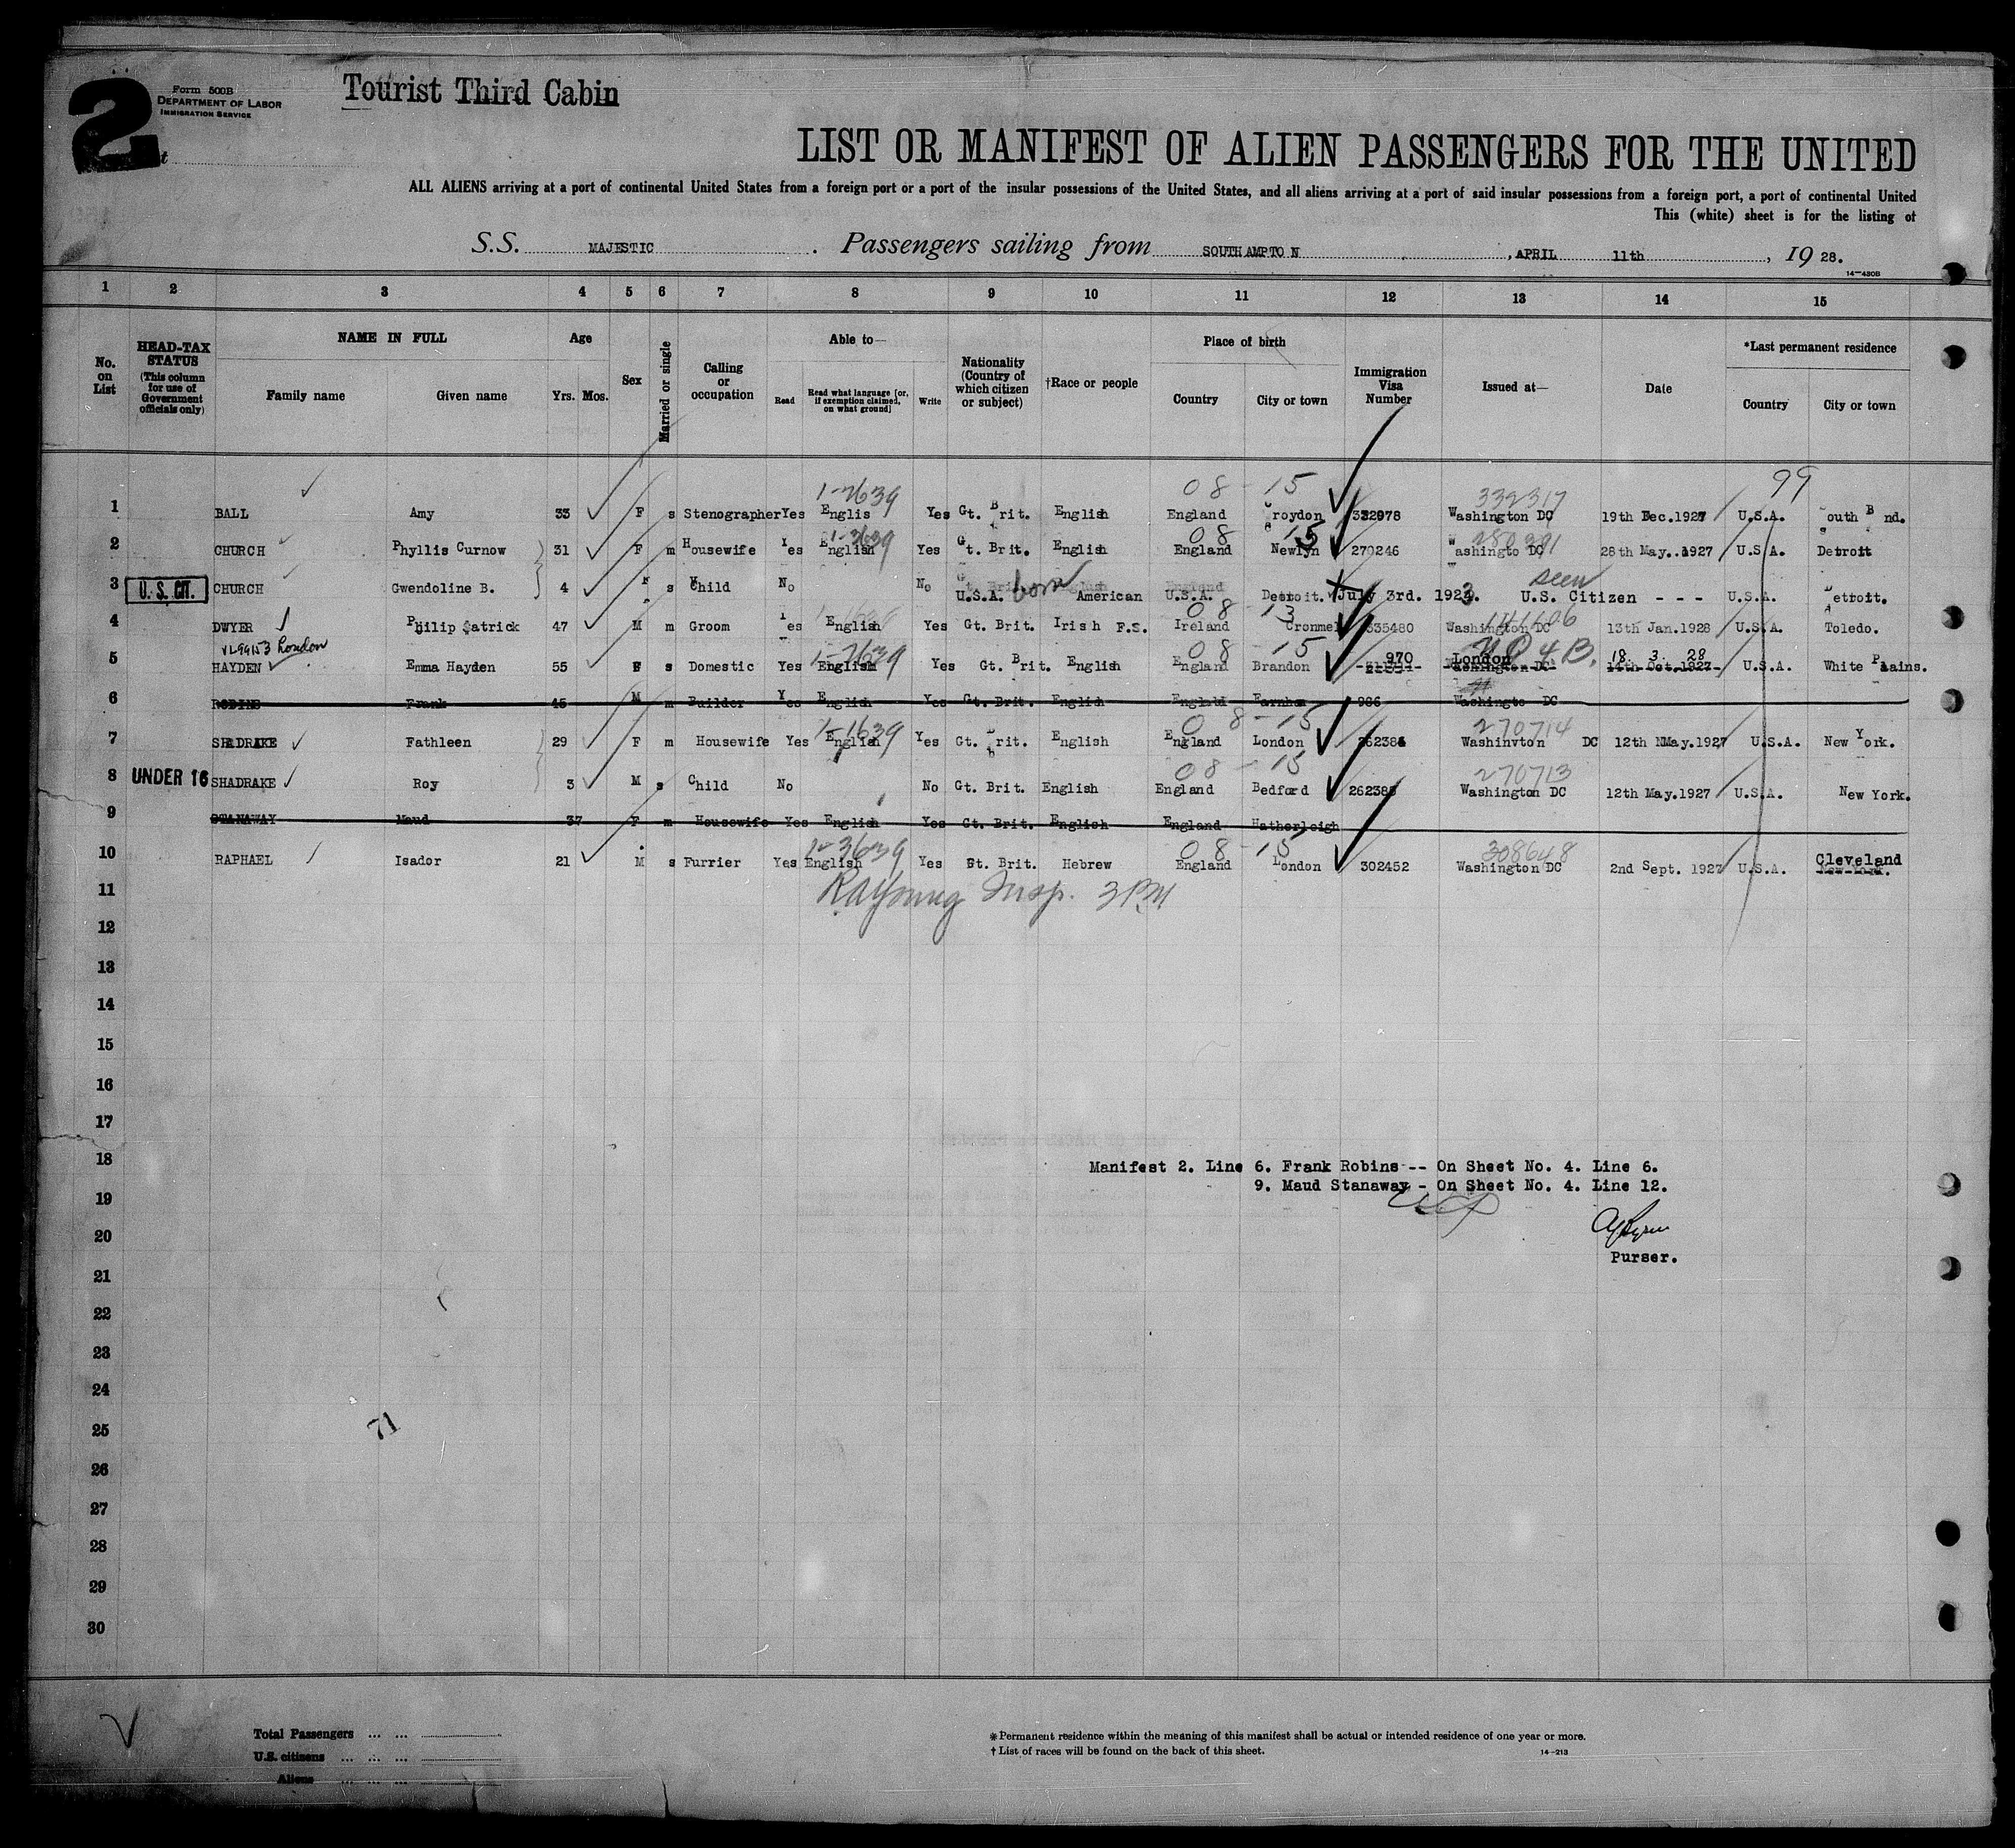 2
Form 500B
DEPARTMENT OF LABOR
IMMIGRATION SERVICE
Tourist Third Cabin
LIST OR MANIFEST OF ALIEN PASSENGERS FOR THE UNITED
ALL ALIENS arriving at a port of continental United States from a foreign port or a port of the insular possessions of the United States, and all aliens arriving at a port of said insular possessions from a foreign port, a port of continental United
This (white) sheet is for the listing of
S.S. MAJESTIC. Passengers sailing from SOUTHAMPTON, APRIL 11th, 19 28.
14-430B
1 2 3 4 5 6 7 8 9 10 11 12 13 14 15
No. on List
HEAD-TAX STATUS (This column for use of Government officials only)
NAME IN FULL
Family name Given name
Age
Yrs. Mos.
Sex
Married or single
Calling or occupation
Able to—
Read Read what language [or, if exemption claimed, on what ground] Write
Nationality (Country of which citizen or subject)
†Race or people
Place of birth
Country City or town
Immigration Visa Number
Issued at—
Date
*Last permanent residence
Country City or town
99
1-7639 08 - 15 332317
1 BALL Amy 33 F s Stenographer Yes Englis Yes Gt. Brit. English England Croydon 332978 Washington DC 19th Dec.1927 U.S.A. South Bnd.
1-3639 08 15
2 CHURCH Phyllis Curnow 31 F m Housewife Yes English Yes Gt. Brit. English England Newlyn 270246 Washingto DC 28th May..1927 U.S.A. Detroit
seen
3 U.S. CIT. CHURCH Gwendoline B. 4 F s Child No No Gt. Brit. born English England
U.S.A. American U.S.A. Detroit. July 3rd. 1923. U.S. Citizen - - - U.S.A. Detroit.
08 - 13
4 DWYER Philip Patrick 47 M m Groom Yes English Yes Gt. Brit. Irish F.S. Ireland Cronmel 335480 Washington DC 13th Jan.1928 U.S.A. Toledo.
London
1-7639 08 - 15 970 London 18. 3. 28
5 HAYDEN Emma Hayden 55 F s Domestic Yes English Yes Gt. Brit. English England Brandon Washington DC 14th Oct.1927 U.S.A. White Plains.
6 ROBINS Frank 45 M m Builder Yes English Yes Gt. Brit. English England Farnham 986 Washingto DC
1-1639 08 - 15 270714
7 SHADRAKE Fathleen 29 F m Housewife Yes English Yes Gt. Brit. English England London 262386 Washinvton DC 12th May.1927 U.S.A. New York.
08 - 15 270713
8 UNDER 16 SHADRAKE Roy 3 M s Child No No Gt. Brit. English England Bedford 262385 Washington DC 12th May.1927 U.S.A. New York.
9 STANAWAY Maud 37 F m Housewife Yes English Yes Gt. Brit. English England Hatherleigh
1-3639 08 - 15 308648
10 RAPHAEL Isador 21 M s Furrier Yes English Yes Gt. Brit. Hebrew England London 302452 Washington DC 2nd Sept. 1927 U.S.A. Cleveland
New York.
11 RAYoung Insp. 3 PM
12
13
14
15
16
17
18 Manifest 2. Line 6. Frank Robins -- On Sheet No. 4. Line 6.
19 9. Maud Stanaway - On Sheet No. 4. Line 12.
20
Purser.
21
22
23
24
25
71
26
27
28
29
30
Total Passengers ... ...
U.S. citizens ... ... ...
Aliens ... ... ...
* Permanent residence within the meaning of this manifest shall be actual or intended residence of one year or more.
† List of races will be found on the back of this sheet.
14-213